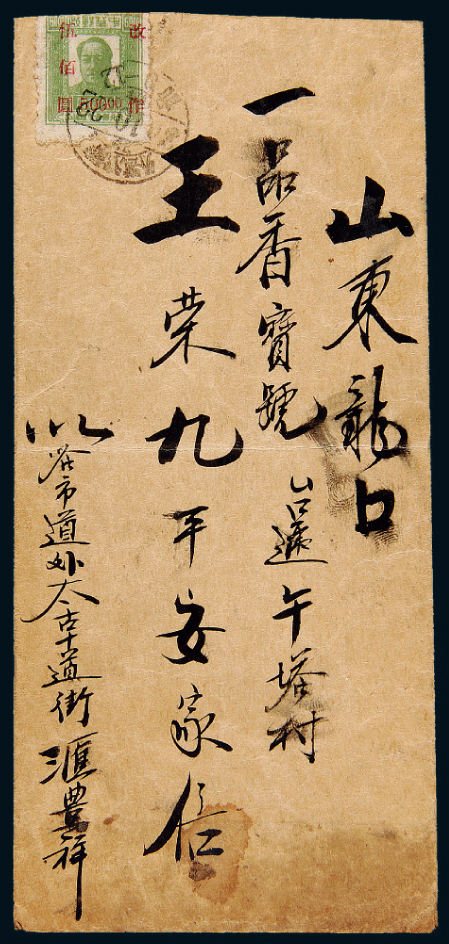 山東龍口
一品香寶號
台遞午塔村
王荣九平安家信
哈市道外太古十道街滙豊祥
改作
伍佰圓
500.00